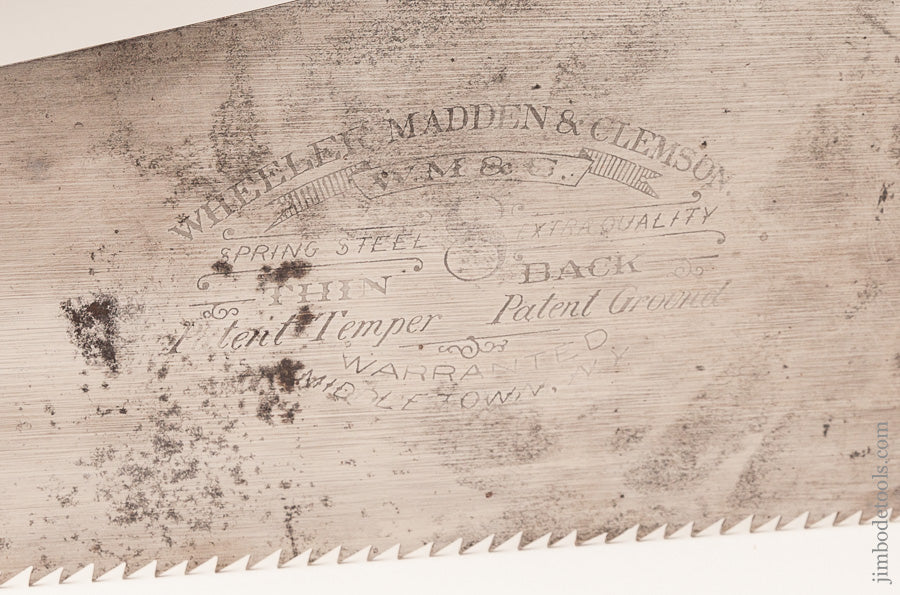 WHEELER MADDEN & CLEMSON
W.M & C.
SPRING STEEL EXTRA QUALITY
THIN BACK
Patent Temper Patent Ground
WARRANTED
MIDDLETOWN, N.Y
jimbodetools.com